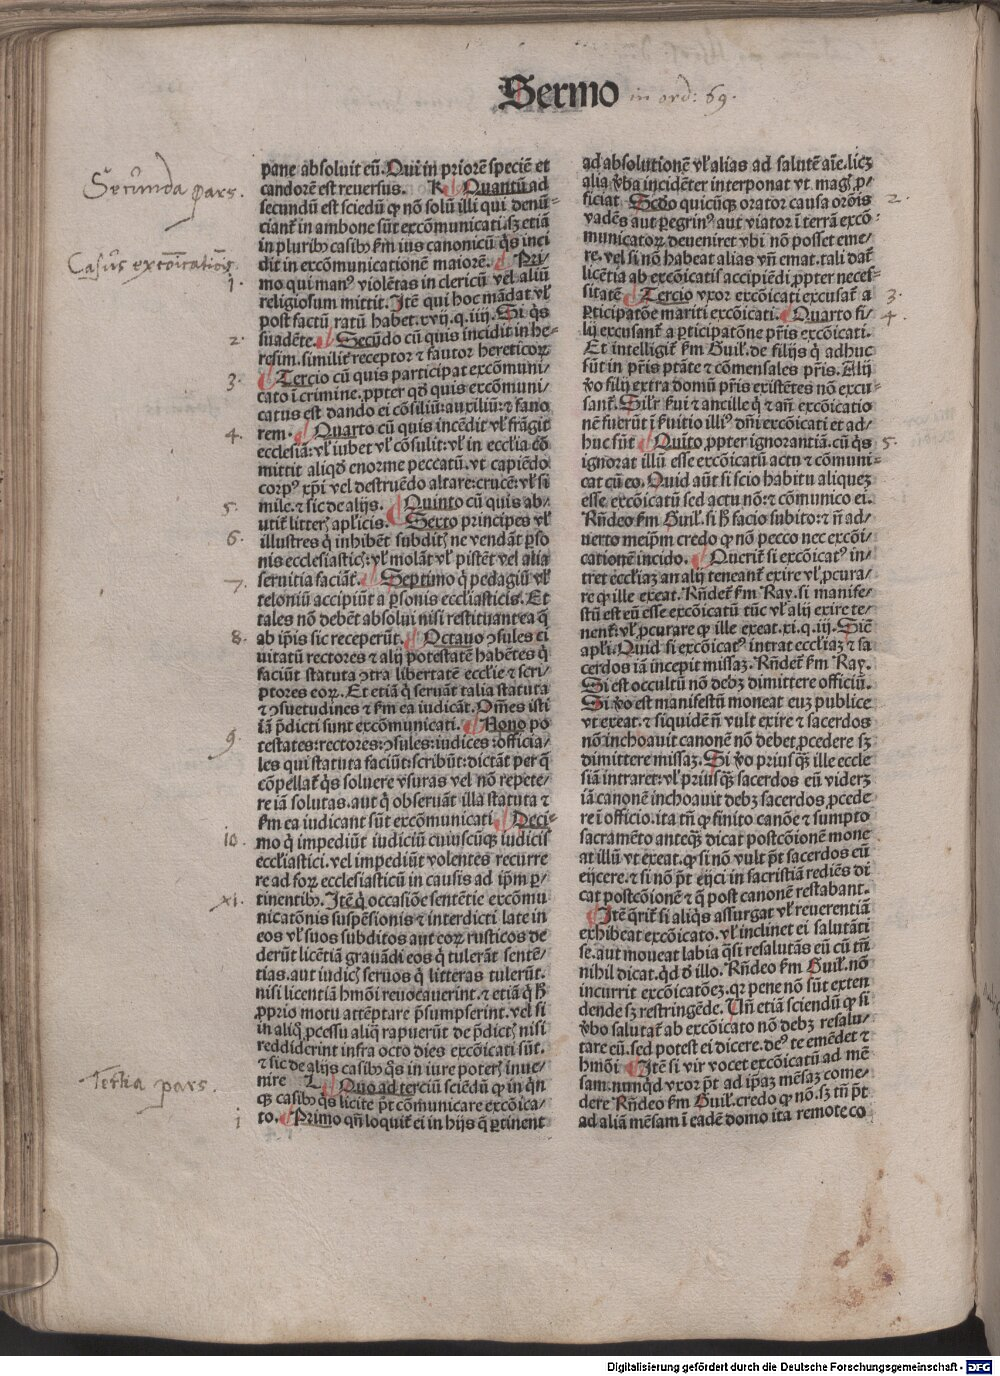 Sermo in ord: 69.
pane absoluit eū. Qui in priorē speciē et
candorē est reuersus. K Quantū ad
secundū est sciēdū ꝙ nō solū illi qui denū-
ciant̄ in ambone sūt excōmunicati. sꝫ etiā
in pluribꝰ casibꝰ ẜm ius canonicū q̇s inci
dit in excōmunicationē maiorē. Pri-
mo qui manꝰ violētas in clericū vel aliū
religiosum mittit. Itē qui hoc mādat vl̓
post factū ratū habet. xvij. q. iiij. Si q̇s
suadēte. Secūdo cū quis incidit in he-
resim. similit̓ receptor ⁊ fautor hereticoꝝ
Tercio cū quis participat excōmuni/
cato ī crimine. ꝓpter qd̓ quis excōmuni/
catus est dando ei cōsiliū: auxiliū: ⁊ fauo
rem. Quarto cū quis incēdit vl̓ frāgit
ecclesiā: vl̓ iubet vl̓ cōsulit: vl̓ in eccl̓ia cō
mittit aliqd̓ enorme peccatū. vt capiēdo
corpꝰ xp̄i vel destruēdo altare: crucē: vl̓ si
mile. ⁊ sic de alijs. Quinto cū quis ab/
utit̓ litteꝝ apl̓icis. Sexto principes vl̓
illustres q̇ inhibēt subditꝭ ne vendāt ꝑso
nis ecclesiasticꝭ: vl̓ molāt vl̓ pistēt vel alia
seruitia faciāt. Septimo q̇ pedagiū vl̓
teloniū accipiūt a ꝑsonis eccl̓iasticis. Et
tales nō debēt absolui nisi restituant ea q̄
ab ip̄is sic receperūt. Octauo ꝯsules ci
uitatū rectores ⁊ alij potestatē habētes q̇
faciūt statuta ꝯtra libertatē eccl̓ie ⁊ scri/
ptores eoꝝ. Et etiā q̇ seruāt talia statuta
⁊ ꝯsuetudines ⁊ ẜm ea iudicāt. Om̄es isti
iā p̄dicti sunt excōmunicati. Nono po
testates: rectores: ꝯsules: iudices: officia/
les qui statuta faciūt: scribūt: dictāt per q̄
cōpellat̓ q̇s soluere vsuras vel nō repete/
re iā solutas. aut q̇ obseruāt illa statuta ⁊
ẜm ea iudicant sūt excōmunicati. Deci-
mo q̇ impediūt iudiciū cuiuscūqꝫ iudicis
eccl̓iastici. vel impediūt volentes recurre
re ad foꝝ ecclesiasticū in causis ad ip̄m ꝑ/
tinentibꝰ. Itē q̇ occasiōe sentētie excōmu
nicatōnis suspēsionis ⁊ interdicti late in
eos vl̓ suos subditos aut eoꝝ rusticos de
derūt licētiā grauādi eos q̇ tulerāt sentē/
tias. aut iudicꝭ seruos q̇ litteras tulerūt.
nisi licentiā hm̄oi reuocauerint. ⁊ etiā q̇ h̓
ꝓprio motu attēptare p̄sumpserint. vel si
in aliq̇ ꝓcessu aliq̄ rapuerūt de p̄dictꝭ nisi
reddiderint infra octo dies excōicati sūt.
⁊ sic de alijs casibꝰ q̇s in iure poterꝭ inue/
nire L Quo ad terciū sciēdū ꝙ in qn̄
qꝫ casibꝰ q̇s licite p̄t cōmunicare excōica/
to. Primo qn̄ loquit̓ ei in hijs q̄ ꝑtinent
ad absolutionē vl̓ alias ad salutē aīe. licꝫ
alia v̓ba incidēter interponat vt magꝭ ꝓ/
ficiat. Scd̓o quicūqꝫ orator causa orōis
vadēs aut ꝑegrinꝰ aut viator ī terrā excō-
municatoꝝ deueniret vbi nō posset eme/
re. vel si nō habeat alias vn̄ emat. tali dat̓
licētia ab excōicatis accipiēdi ꝓpter neces-
sitatē Tercio vxor excōicati excusat̓ a
ꝑticipatōe mariti excōicati. Quarto fi/
lij excusant̓ a ꝑticipatōne p̄ris excōicati.
Et intelligit̓ ẜm Guil̓. de filijs q̇ adhuc
sūt in p̄ris ptāte ⁊ cōmensales p̄ris. Alij
v̓o filij extra domū p̄ris existētes nō excu-
sant̓. Sil̓r ẜui ⁊ ancille q̇ ⁊ an̄ excōicatio
nē fuerūt ī ẜuitio illiꝰ dn̄i excōicati et ad/
huc sūt Quīto ꝓpter ignorantiā. cū q̇s
ignorat illū esse excōicatū actu ⁊ cōmuni-
cat cū eo. Quid aūt si scio habitu aliquez
esse excōicatū sed actu nō: ⁊ cōmunico ei.
Rn̄deo ẜm Guil̓. si h̓ facio subito: ⁊ n̄ ad/
uerto meip̄m credo ꝙ nō pecco nec excōi/
cationē incido. Querit̓ si excōicatꝰ in/
tret eccl̓iaꝫ an alij teneant̓ exire vl̓ ꝓcura/
re ꝙ ille exeat. Rn̄det̓ ẜm Ray. si manife/
stū est eū esse excōicatū tūc vl̓ alij exire te/
nent̓: vl̓ ꝓcurare ꝙ ille exeat. xi. q. iij. Sicē
apl̓i. Quid si excōicatꝰ intrat eccl̓iaꝫ ⁊ sa
cerdos iā incepit missaꝫ. Rn̄det̓ ẜm Ray.
Si est occultū nō debꝫ dimittere officiū.
Si v̓o est manifestū moneat euꝫ publice
vt exeat. ⁊ siquidē n̄ vult exire ⁊ sacerdos
nō inchoauit canonē nō debet ꝓcedere sꝫ
dimittere missaꝫ. Si v̓o priusqꝫ ille eccle
siā intraret: vl̓ priusqꝫ sacerdos eū viderꝫ
iā canonē inchoauit debꝫ sacerdos ꝓcede
re ī officio. ita tn̄ ꝙ finito canōe ⁊ sumpto
sacramēto anteqꝫ dicat postcōionē mone
at illū vt exeat. ꝙ si nō vult p̄t sacerdos eū
eijcere. ⁊ si nō p̄t eijci in sacristiā rediēs di
cat postcōionē ⁊ q̄ post canonē restabant.
Itē q̄rit̓ si aliq̇s assurgat vl̓ reuerentiā
exhibeat excōicato. vl̓ inclinet ei salutāti
se. aut moueat labia q̄si resalutās eū cū tn̄
nihil dicat. qd̓ d̓ illo. Rn̄deo ẜm Guil̓. nō
incurrit excōicatōeꝫ. qꝛ pene nō sūt exten
dende sꝫ restringēde. Un̄ etiā sciendū ꝙ si
v̓bo salutat̓ ab excōicato nō debꝫ resalu/
tare eū. sed potest ei dicere. deꝰ te emēdet ⁊
hm̄oi Itē si vir vocet excōicatū ad mē
sam. nunqd̓ vxor p̄t ad ip̄aꝫ mēsaꝫ come/
dere Rn̄deo ẜm Guil̓. credo ꝙ nō. sꝫ tn̄ p̄t
ad aliā mēsam ī eadē domo ita remote co
Secunda pars.
Casus excōicationis
1.
2.
3.
4.
5.
6.
7.
8.
9.
10.
xi.
Tertia pars.
1
2.
3.
4.
5.
Digitalisierung gefördert durch die Deutsche Forschungsgemeinschaft - DFG